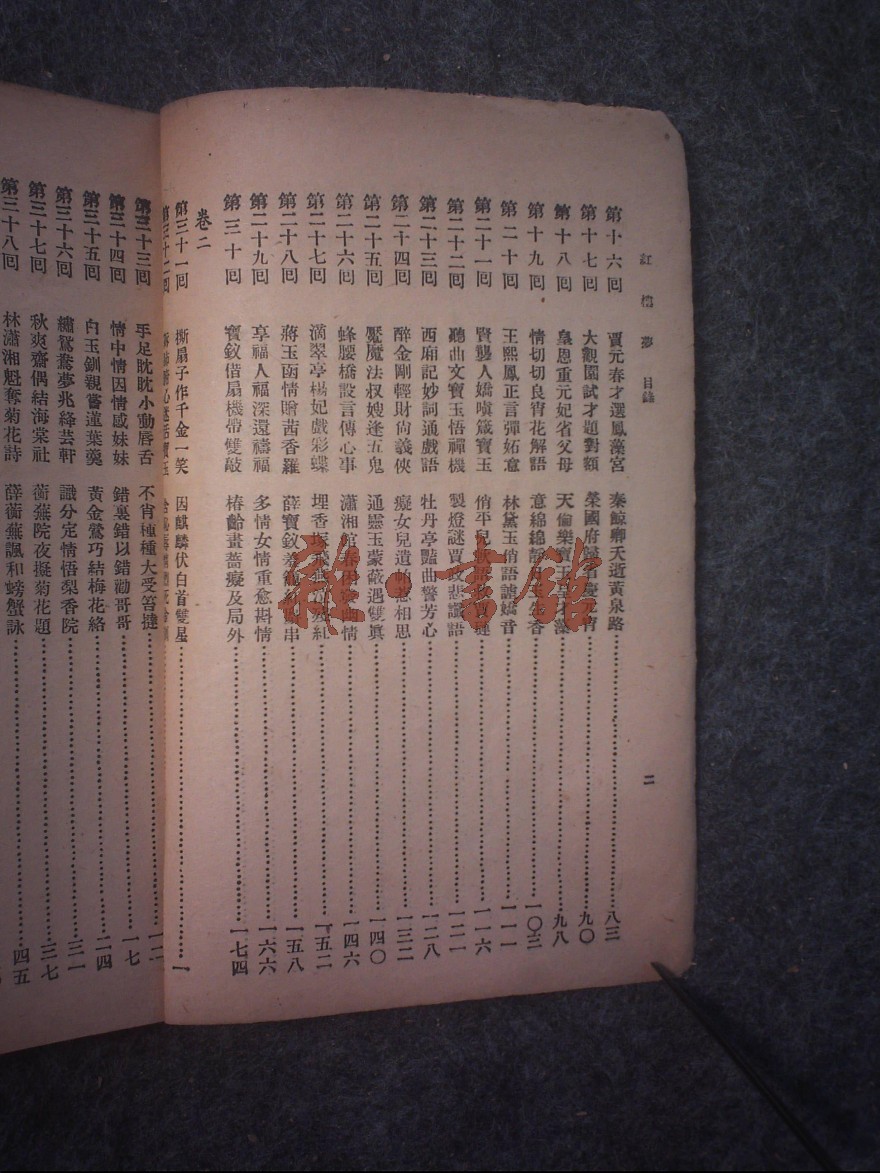 紅樓夢 目錄
二
第十六回 賈元春才選鳳藻宮 秦鯨卿夭逝黃泉路 八三
第十七回 大觀園試才題對額 榮國府歸省慶 九〇
第十八回 皇恩重元妃省父母 天倫樂寶玉 藻 九八
第十九回 情切切良宵花解語 意綿綿靜 香 一〇三
第二十回 王熙鳳正言彈妬意 林黛玉俏語謔嬌音 一一一
第二十一回 賢襲人嬌嗔箴寶玉 俏平兒 一一六
第二十二回 聽曲文寶玉悟禪機 製燈謎賈政悲讖語 一二一
第二十三回 西廂記妙詞通戲語 牡丹亭豔曲警芳心 一二八
第二十四回 醉金剛輕財尚義俠 癡女兒遺帕惹相思 一三二
第二十五回 魘魔法叔嫂逢五鬼 通靈玉蒙蔽遇雙眞 一四〇
第二十六回 蜂腰橋設言傳心事 瀟湘館春 情 一四六
第二十七回 滴翠亭楊妃戲彩蝶 埋香塚 紅 一五二
第二十八回 蔣玉函情贈茜香羅 薛寶釵羞 串 一五八
第二十九回 享福人福深還禱福 多情女情重愈斟情 一六六
第三十回 寶釵借扇機帶雙敲 椿齡畫薔癡及局外 一七四
卷二
第三十一回 撕扇子作千金一笑 因麒麟伏白首雙星 一
第三十二回
第三十三回 手足眈眈小動唇舌 不肖種種大受笞撻
第三十四回 情中情因情感妹妹 錯裏錯以錯勸哥哥 一七
第三十五回 白玉釧親嘗蓮葉羹 黃金鶯巧結梅花絡 二四
第三十六回 繡鴛鴦夢兆絳芸軒 識分定情悟梨香院 三一
第三十七回 秋爽齋偶結海棠社 蘅蕪院夜擬菊花題 三七
第三十八回 林瀟湘魁奪菊花詩 薛蘅蕪諷和螃蟹詠 四五
雜·書館